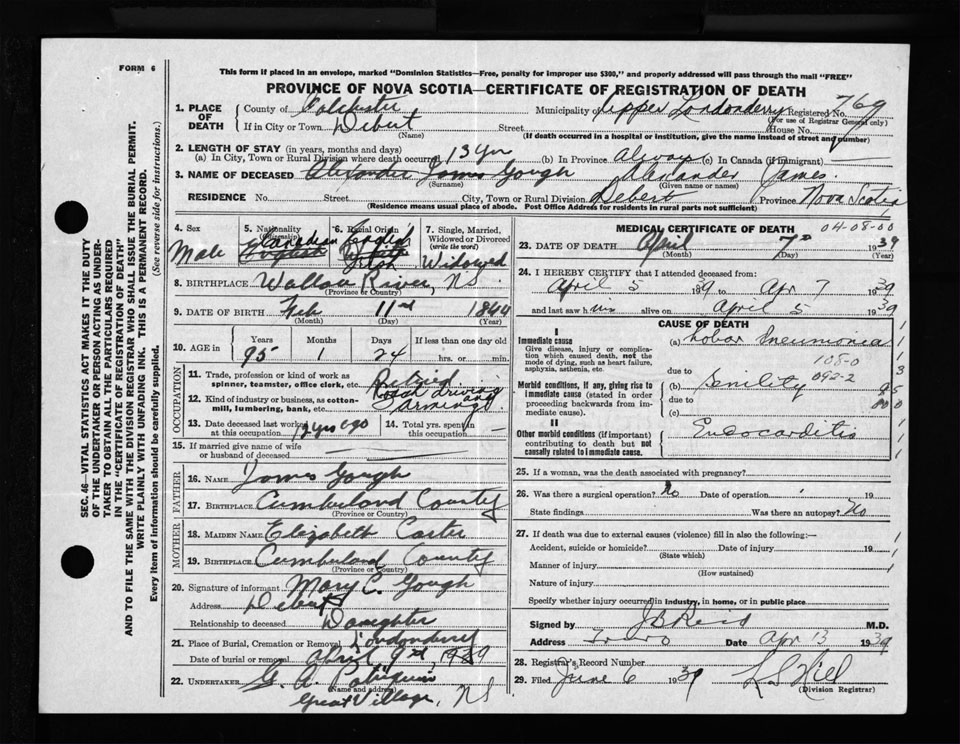 FORM 6
This form if placed in an envelope, marked "Dominion Statistics—Free, penalty for improper use $300," and properly addressed will pass through the mail "FREE"
PROVINCE OF NOVA SCOTIA—CERTIFICATE OF REGISTRATION OF DEATH
1. PLACE OF DEATH County of Colchester Municipality of Upper Londonderry Registered No. 769
(For use of Registrar General only)
If in City or Town Debert Street House No.
(Name) (If death occurred in a hospital or institution, give the name instead of street and number)
2. LENGTH OF STAY (in years, months and days)
(a) In City, Town or Rural Division where death occurred 13 yrs (b) In Province Always (c) In Canada (if immigrant)
3. NAME OF DECEASED Alexander James Gough Alexander James
(Surname) (Given name or names)
RESIDENCE No. Street City, Town or Rural Division Debert Province Nova Scotia
(Residence means usual place of abode. Post Office Address for residents in rural parts not sufficient)
4. Sex 5. Nationality (Citizenship) 6. Racial Origin 7. Single, Married, Widowed or Divorced (write the word)
Male Canadian English English Irish Widowed
8. BIRTHPLACE Wallace River, NS.
(Province or Country)
9. DATE OF BIRTH Feb 11th 1844
(Month) (Day) (Year)
10. AGE in Years Months Days If less than one day old
95 1 24 hrs. or min.
OCCUPATION
11. Trade, profession or kind of work as spinner, teamster, office clerk, etc. Retired
12. Kind of industry or business, as cotton-mill, lumbering, bank, etc. driving and farming
13. Date deceased last worked at this occupation 12 yrs ago 14. Total yrs. spent in this occupation
15. If married give name of wife or husband of deceased
FATHER
16. NAME James Gough
17. BIRTHPLACE Cumberland County
(Province or Country)
MOTHER
18. MAIDEN NAME Elizabeth Carter
19. BIRTHPLACE Cumberland County
(Province or Country)
20. Signature of informant Mary C. Gough
Address Debert
Relationship to deceased Daughter
21. Place of Burial, Cremation or Removal Londonderry
Date of burial or removal April 9th, 1939
22. UNDERTAKER G. A.
(Name and address)
Great Village, NS
MEDICAL CERTIFICATE OF DEATH
04-08-00
23. DATE OF DEATH April 7th 1939
(Month) (Day) (Year)
24. I HEREBY CERTIFY that I attended deceased from:
April 5 1939 to Apr 7 1939
and last saw him alive on April 5 1939
CAUSE OF DEATH
I
Immediate cause (a) Lobar Pneumonia
Give disease, injury or complication which caused death, not the mode of dying, such as heart failure, asphyxia, asthenia, etc.
108-0
due to 092-2
Morbid conditions, if any, giving rise to immediate cause (stated in order proceeding backwards from immediate cause).
(b) Senility
due to
(c)
II
Other morbid conditions (if important) contributing to death but not causally related to immediate cause. Endocarditis
25. If a woman, was the death associated with pregnancy?
26. Was there a surgical operation? No Date of operation 19
State findings Was there an autopsy? No
27. If death was due to external causes (violence) fill in also the following:—
Accident, suicide or homicide? Date of injury 19
(State which)
Manner of injury
(How sustained)
Nature of injury
Specify whether injury occurred in industry, in home, or in public place
Signed by J B Reid M.D.
Address Truro Date Apr 13 1939
28. Registrar's Record Number
29. Filed June 6 1939 L S Hill
(Division Registrar)
SEC. 46—VITAL STATISTICS ACT MAKES IT THE DUTY
OF THE UNDERTAKER OR PERSON ACTING AS UNDER-
TAKER TO OBTAIN ALL THE PARTICULARS REQUIRED
IN THE "CERTIFICATE OF REGISTRATION OF DEATH"
AND TO FILE THE SAME WITH THE DIVISION REGISTRAR WHO SHALL ISSUE THE BURIAL PERMIT.
WRITE PLAINLY WITH UNFADING INK. THIS IS A PERMANENT RECORD.
Every item of information should be carefully supplied. (See reverse side for instructions.)